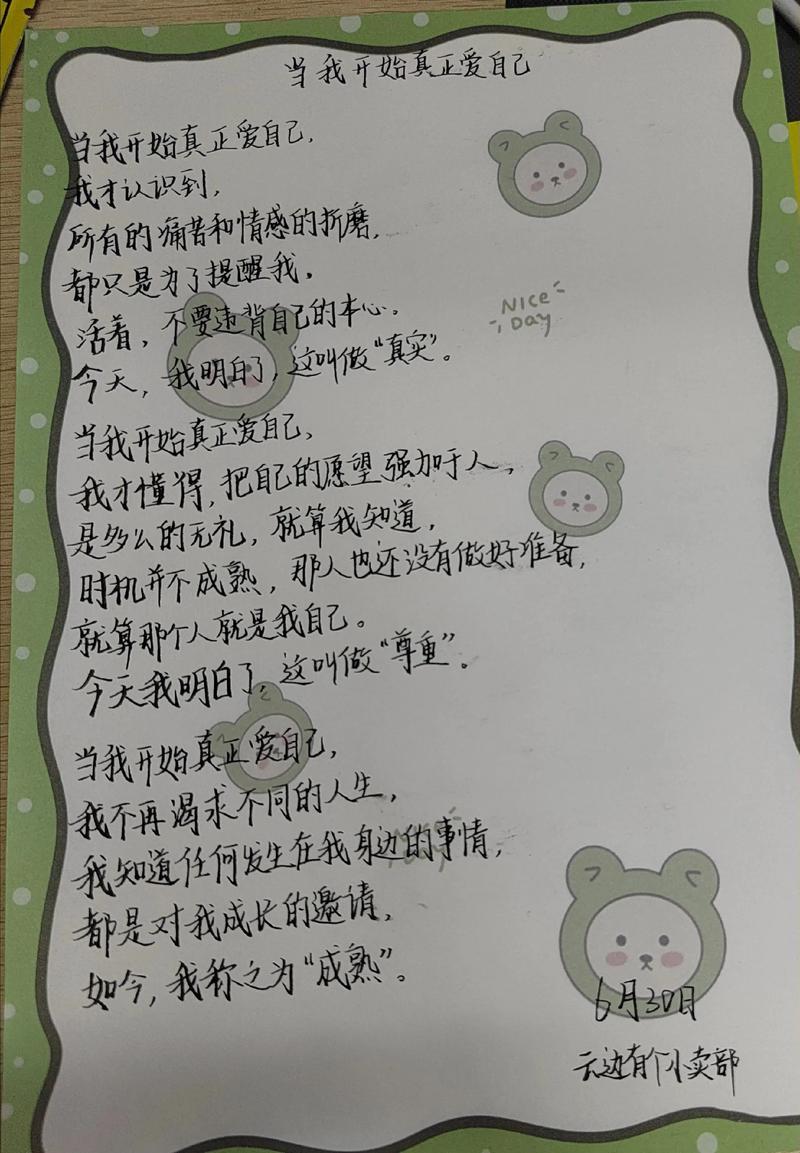 当我开始真正爱自己
当我开始真正爱自己，
我才认识到，
所有的痛苦和情感的折磨，
都只是为了提醒我。
活着，不要违背自己的本心。
今天，我明白了，这叫做“真实”。
NICE
DAY
当我开始真正爱自己，
我才懂得，把自己的愿望强加于人，
是多么的无礼，就算我知道，
时机并不成熟，那人也还没有做好准备，
就算那个人就是我自己。
今天我明白了，这叫做“尊重”。
当我开始真正爱自己，
我不再渴求不同的人生，
我知道任何发生在我身边的事情，
都是对我成长的邀请，
如今，我称之为“成熟”。
6月30日
云边有个小卖部